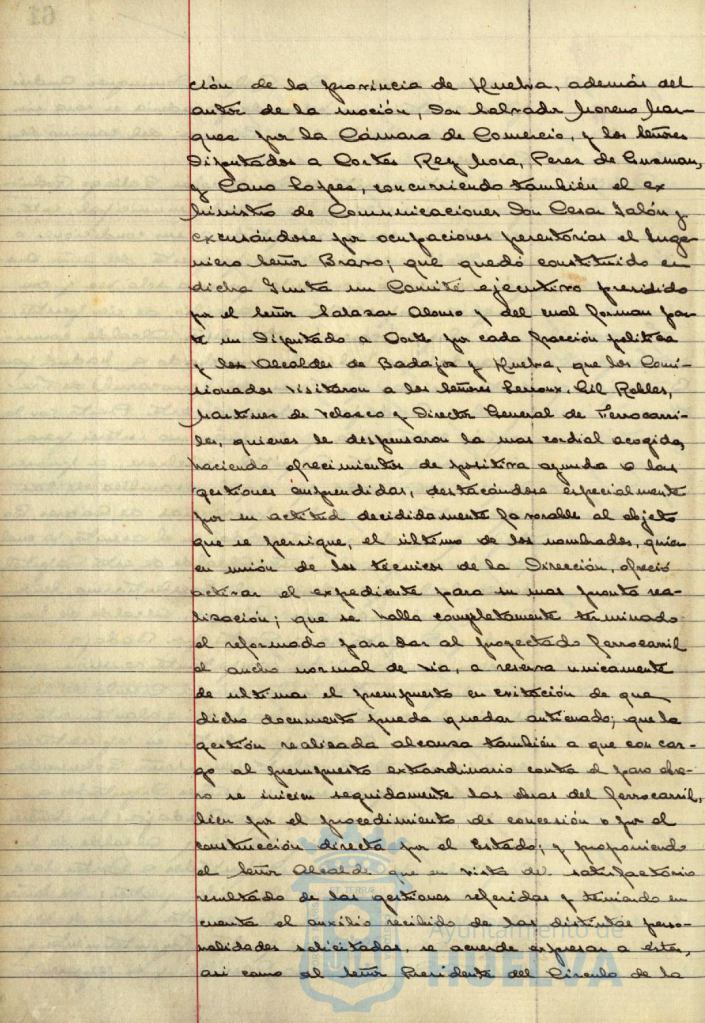 ción de la provincia de Huelva, además del
autor de la moción, Don Salvador Moreno Már-
quez por la Cámara de Comercio, y los Señores
Diputados a Cortes Rey Mora, Perez de Guzman,
y Cano Lopez, concurriendo también el ex
Ministro de Comunicaciones Don Cesar Jalón y
excusándose por ocupaciones perentorias el Inge-
niero Señor Bravo; que quedó constituido en
dicha Junta un Comité ejecutivo presidido
por el Señor Salazar Alonso y del cual forman par-
te un Diputado a Cortes por cada fracción politica
y los Alcaldes de Badajoz y Huelva, que los Comi-
sionados visitaron a los Señores Lerroux, Gil Robles,
Martinez de Velasco y Director General de Ferrocarri-
les, quienes le dispensaron la mas cordial acogida,
haciendo ofrecimientos de positiva ayuda a las
gestiones emprendidas, destacándose especialmente
por su actitud decididamente favorable al objeto
que se persigue, el último de los nombrados, quien
en unión de los técnicos de la Dirección, ofreció
activar el expediente para su mas pronta rea-
lización; que se halla completamente terminado
el reformado para dar al proyectado ferrocarril
el ancho normal de via, a reserva unicamente
de ultimar el presupuesto en evitación de que
dicho documento pueda quedar anticuado; que la
gestión realizada alcanza también a que con car-
go al presupuesto extraordinario contra el paro obre-
ro se inicien seguidamente las obras del ferrocarril,
bien por el procedimiento de concesión o por el
construcción directa por el Estado; y proponiendo
el Señor Alcalde que en vista del satisfactorio
resultado de las gestiones referidas y teniendo en
cuenta el auxilio recibido de las distintas perso-
nalidades solicitadas, se acuerde expresar a éstas,
asi como al Señor Presidente del Círculo de la
Ayuntamiento de
HUELVA